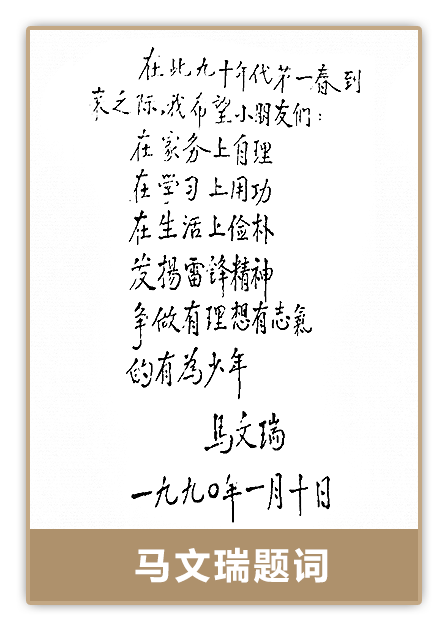 在此九十年代第一春到
来之际,我希望小朋友们:
在家务上自理
在学习上用功
在生活上俭朴
发揚雷锋精神
争做有理想有志氣
的有為少年
马文瑞
一九九〇年一月十日
马文瑞题词